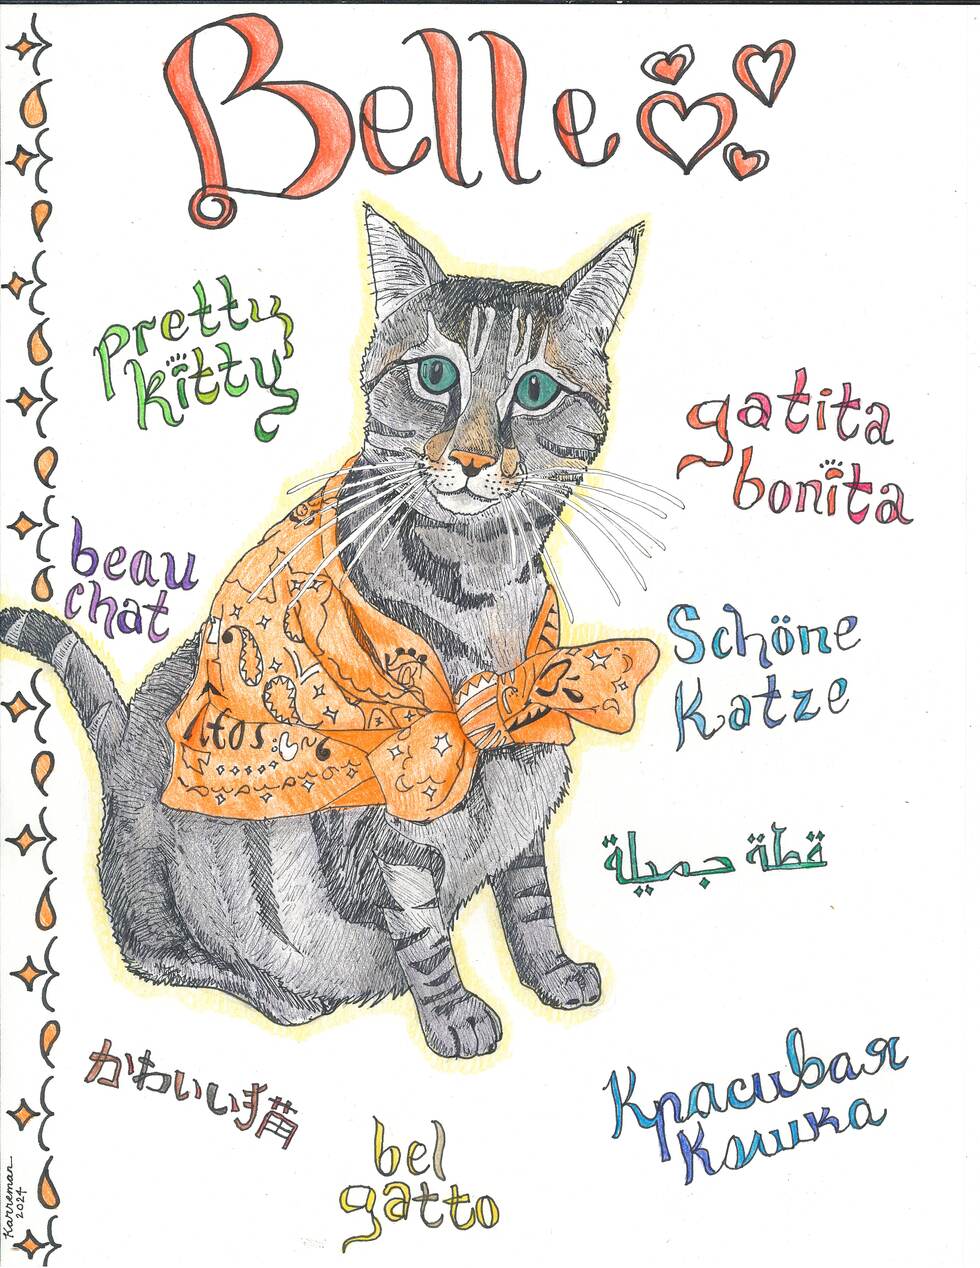 Belle
pretty
kitty
gatita
bonita
beau
chat
Schöne
Katze
Altos
قطة جميلة
かわいい猫
Красивая
Кошка
bel
gatto
Karreman
2024